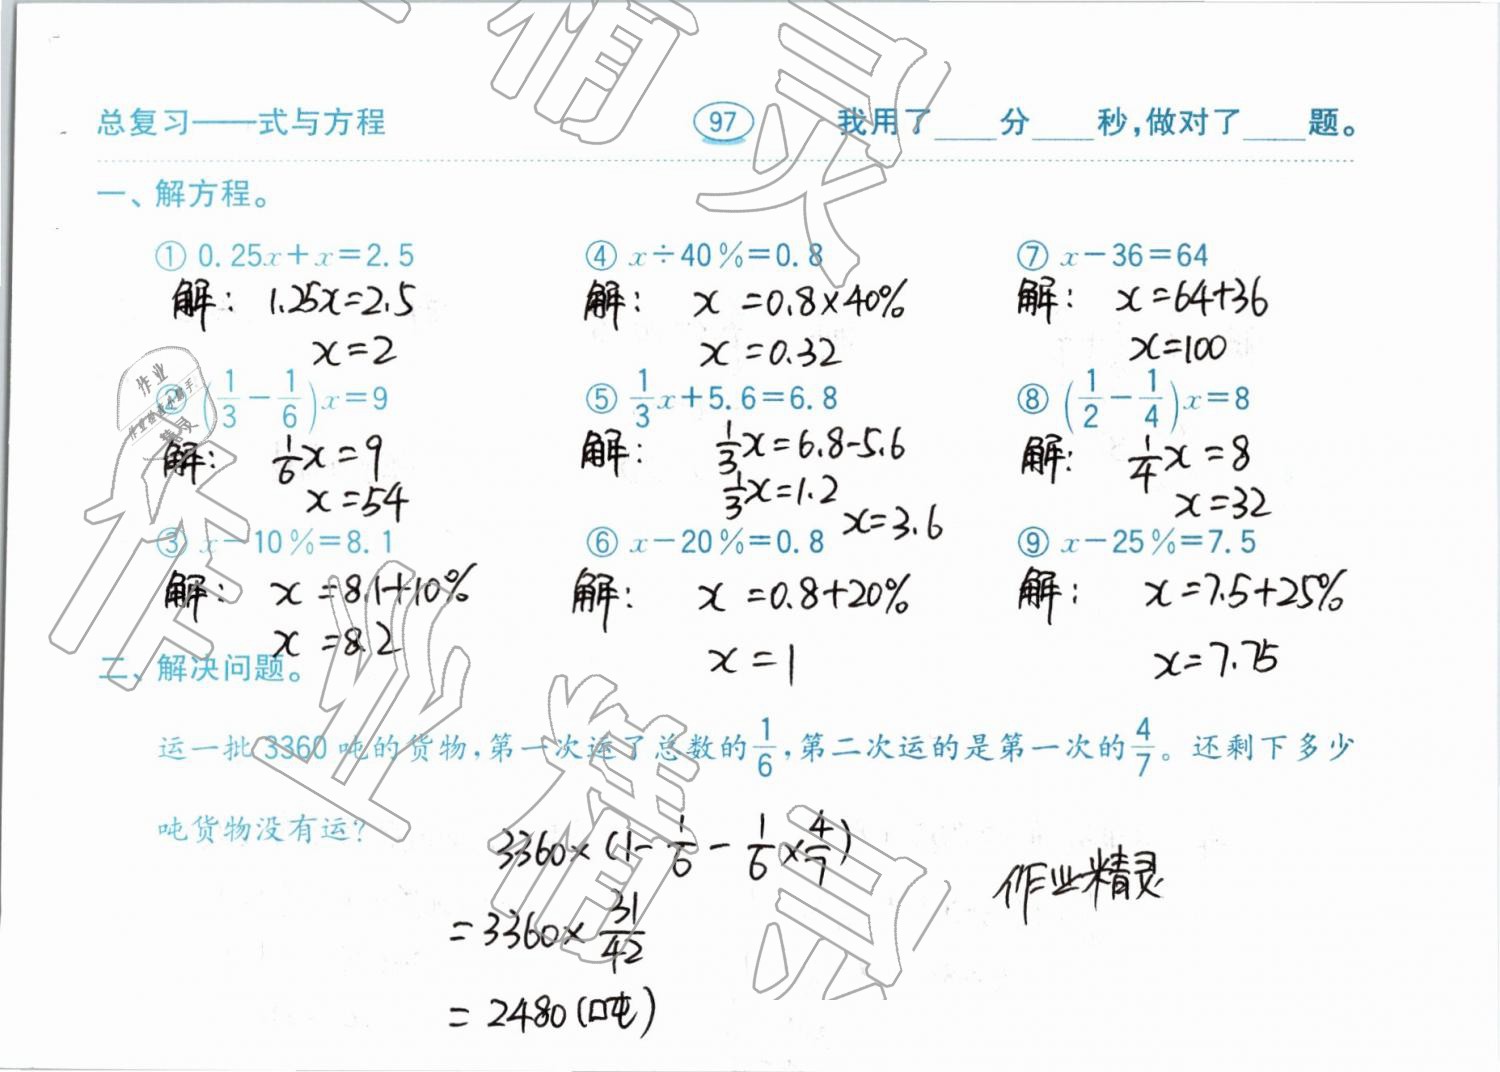 总复习——式与方程 97 我用了____分____秒,做对了____题。
一、解方程。
① 0.25x+x=2.5 ④ x÷40%=0.8 ⑦ x-36=64
解: 1.25x=2.5 解: x=0.8×40% 解: x=64+36
x=2 x=0.32 x=100
② (1/3-1/6)x=9 ⑤ 1/3x+5.6=6.8 ⑧ (1/2-1/4)x=8
解: 1/6x=9 解: 1/3x=6.8-5.6 解: 1/4x=8
x=54 1/3x=1.2 x=3.6 x=32
③ x-10%=8.1 ⑥ x-20%=0.8 ⑨ x-25%=7.5
解: x=8.1+10% 解: x=0.8+20% 解: x=7.5+25%
x=8.2 x=1 x=7.75
二、解决问题。
运一批3360吨的货物,第一次运了总数的1/6,第二次运的是第一次的4/7。还剩下多少
吨货物没有运?
3360×(1-1/6-1/6×4/7)
=3360×31/42
=2480(吨)
作业精灵
作业精灵
精灵
作业
作业检查小助手
精灵